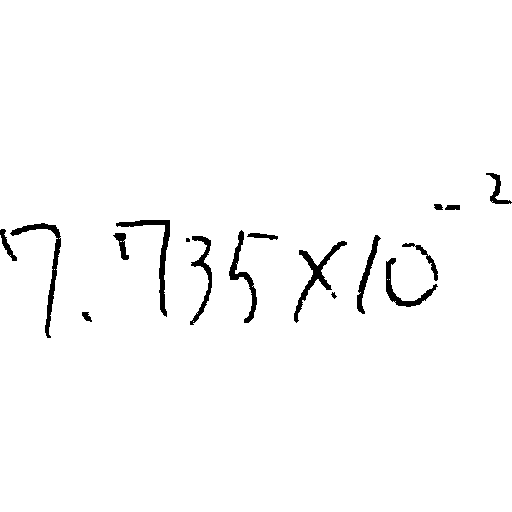 7.735×10⁻²